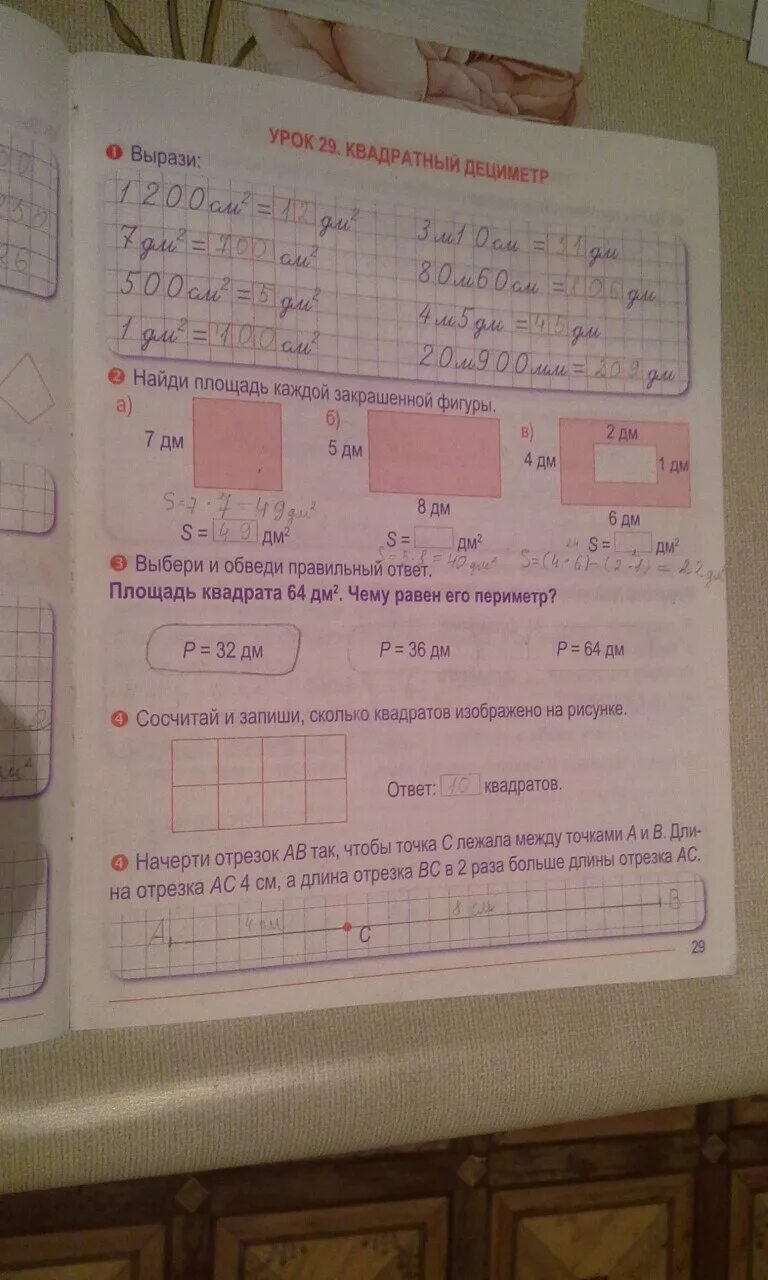 УРОК 29. КВАДРАТНЫЙ ДЕЦИМЕТР
1 Вырази:
1200см² = 12 дм²
7дм² = 700 см²
500см² = 5 дм²
1 дм² = 100 см²
3м10см = 31 дм
80м60см = 806 дм
4м5дм = 45 дм
20м900мм = 209 дм
2 Найди площадь каждой закрашенной фигуры.
а)
7 дм
S=7·7=49дм²
S = 49 дм²
б)
5 дм
8 дм
S = дм²
S=5·8=40дм²
в)
2 дм
4 дм
1 дм
6 дм
S = дм²
24 2
S=(4·6)-(2·1)=22дм
3 Выбери и обведи правильный ответ.
Площадь квадрата 64 дм². Чему равен его периметр?
P = 32 дм P = 36 дм P = 64 дм
4 Сосчитай и запиши, сколько квадратов изображено на рисунке.
Ответ: 10 квадратов.
4 Начерти отрезок AB так, чтобы точка C лежала между точками A и B. Дли-
на отрезка AC 4 см, а длина отрезка BC в 2 раза больше длины отрезка AC.
A 4 см C 8 см B
29